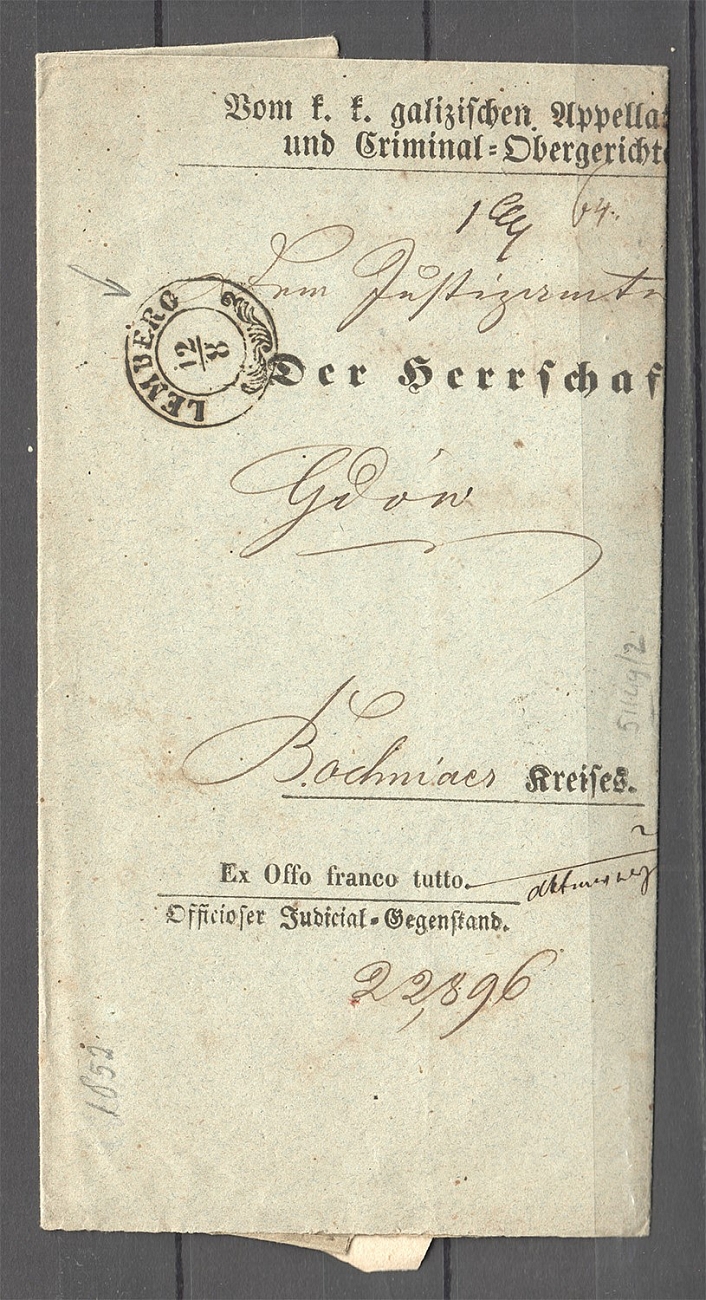 Vom k. k. galizischen Appella
und Criminal=Obergerichte
64.
Dem Justizamte
LEMBERG
12/8
Der Herrschaf
Gdów
Bochniaer Kreises.
Ex Offo franco tutto.
Officioser Judicial=Gegenstand.
22,896
1852